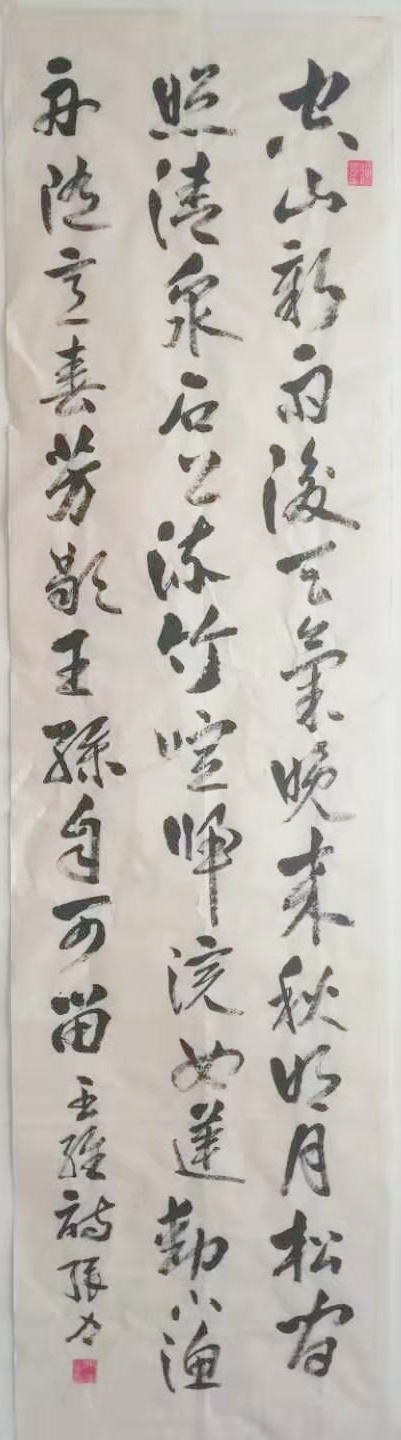 空山新雨後天氣晚來秋明月松間
照清泉石上流竹喧歸浣女蓮動下漁
舟隨意春芳歇王孫自可留王維詩張